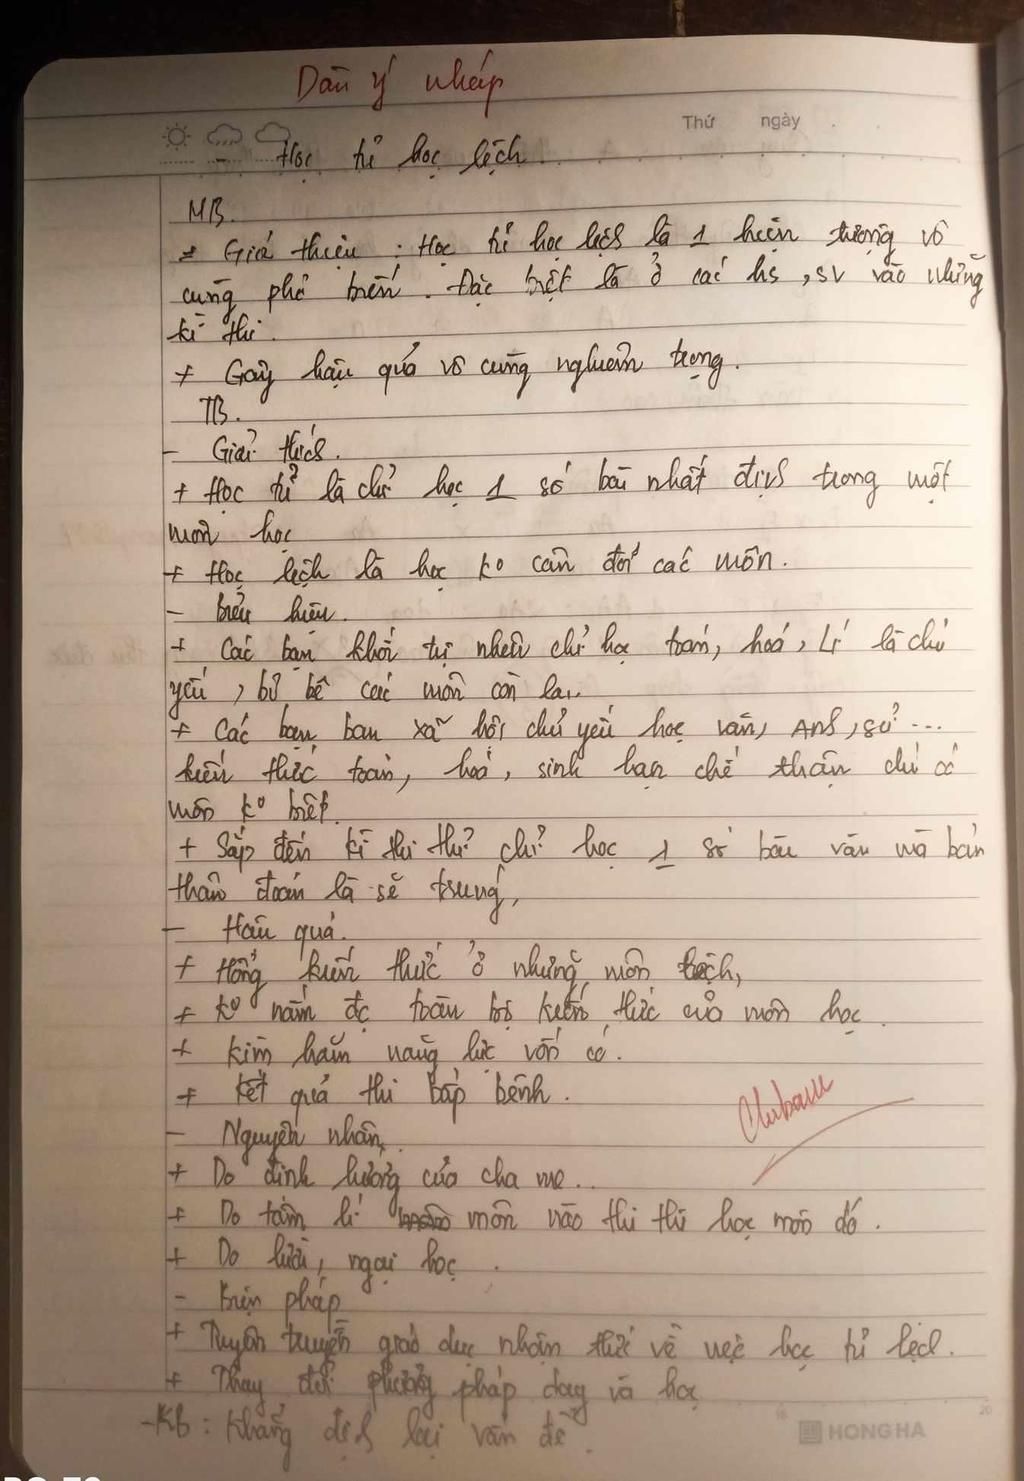 Dàn ý nháp
Thứ ngày
Học tủ học lệch.
MB.
+ Giới thiệu : Học tủ học lệch là 1 hiện tượng vô
cùng phổ biến. Đặc biệt là ở các hs, sv vào những
kì thi.
+ Gây hậu quả vô cùng nghiêm trọng.
TB.
- Giải thích.
+ Học tủ là chỉ học 1 số bài nhất định trong một
môn học
+ Học lệch là học ko cân đối các môn.
- Biểu hiện.
+ Các bạn khối tự nhiên chỉ học toán, hoá, Lí là chủ
yếu, bỏ bê các môn còn lại.
+ Các bạn ban xã hội chủ yếu học văn, Anh, sử ...
kiến thức toán, hoá, sinh hạn chế thậm chí có
môn ko biết.
+ Sắp đến kì thi thì chỉ học 1 số bài văn mà bản
thân đoán là sẽ trúng,
- Hậu quả.
+ Hổng kiến thức ở những môn lệch,
+ ko nắm đc toàn bộ kiến thức của môn học.
+ Kìm hãm năng lực vốn có.
+ Kết quả thi bấp bênh.
- Nguyên nhân.
+ Do định hướng của cha mẹ..
+ Do tâm lí môn nào thi thì học môn đó.
+ Do lười, ngại học.
- Biện pháp
+ Tuyên truyền giáo dục nhận thức về việc học tủ lệch.
+ Thay đổi phương pháp dạy và học
-KB : Khẳng định lại vấn đề.
HONG HA